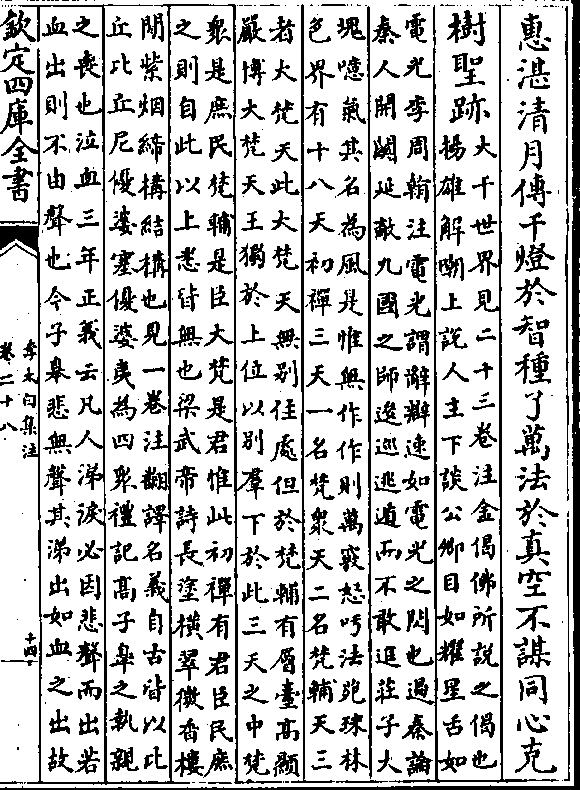 惠湛清月傳千燈於智種了萬法於真空不謀同心克
樹聖跡
大千世界見二十三卷注金偈佛所說之偈也
揚雄解嘲上說人主下談公卿目如耀星舌如
電光李周翰注電光謂辭辯速如電光之閃也過秦論
秦人開關延敵九國之師逡巡逃遁而不敢進莊子大
塊噫氣其名為風是惟無作作則萬竅怒呺法苑珠林
色界有十八天初禪三天一名梵衆天二名梵輔天三
者大梵天此大梵天無別住處但於梵輔有層臺高顯
嚴博大梵天王獨於上位以別羣下於此三天之中梵
衆是庶民梵輔是臣大梵是君惟此初禪有君臣民庶
之則自此以上悉皆無也梁武帝詩長塗橫翠微香樓
間紫烟締構結構也見一卷注翻譯名義自古皆以比
丘比丘尼優婆塞優婆夷為四衆禮記髙子臯之執親
之喪也泣血三年正義云凡人涕淚必因悲聲而出若
血出則不由聲也今子臯悲無聲其涕出如血之出故
欽定四庫全書
李太白集注
卷二十八
十四